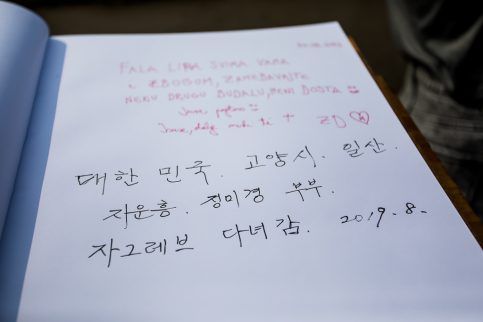 FALA LIPA SVIMA VAMA
I ZBOGOM, ZAJEBAVAJTE
NEKU DRUGU BUDALU, MENI DOSTA
ZD
대한 민국. 고양시. 일산.
차운흥. 정미경 부부.
자그레브 다녀감. 2019. 8.